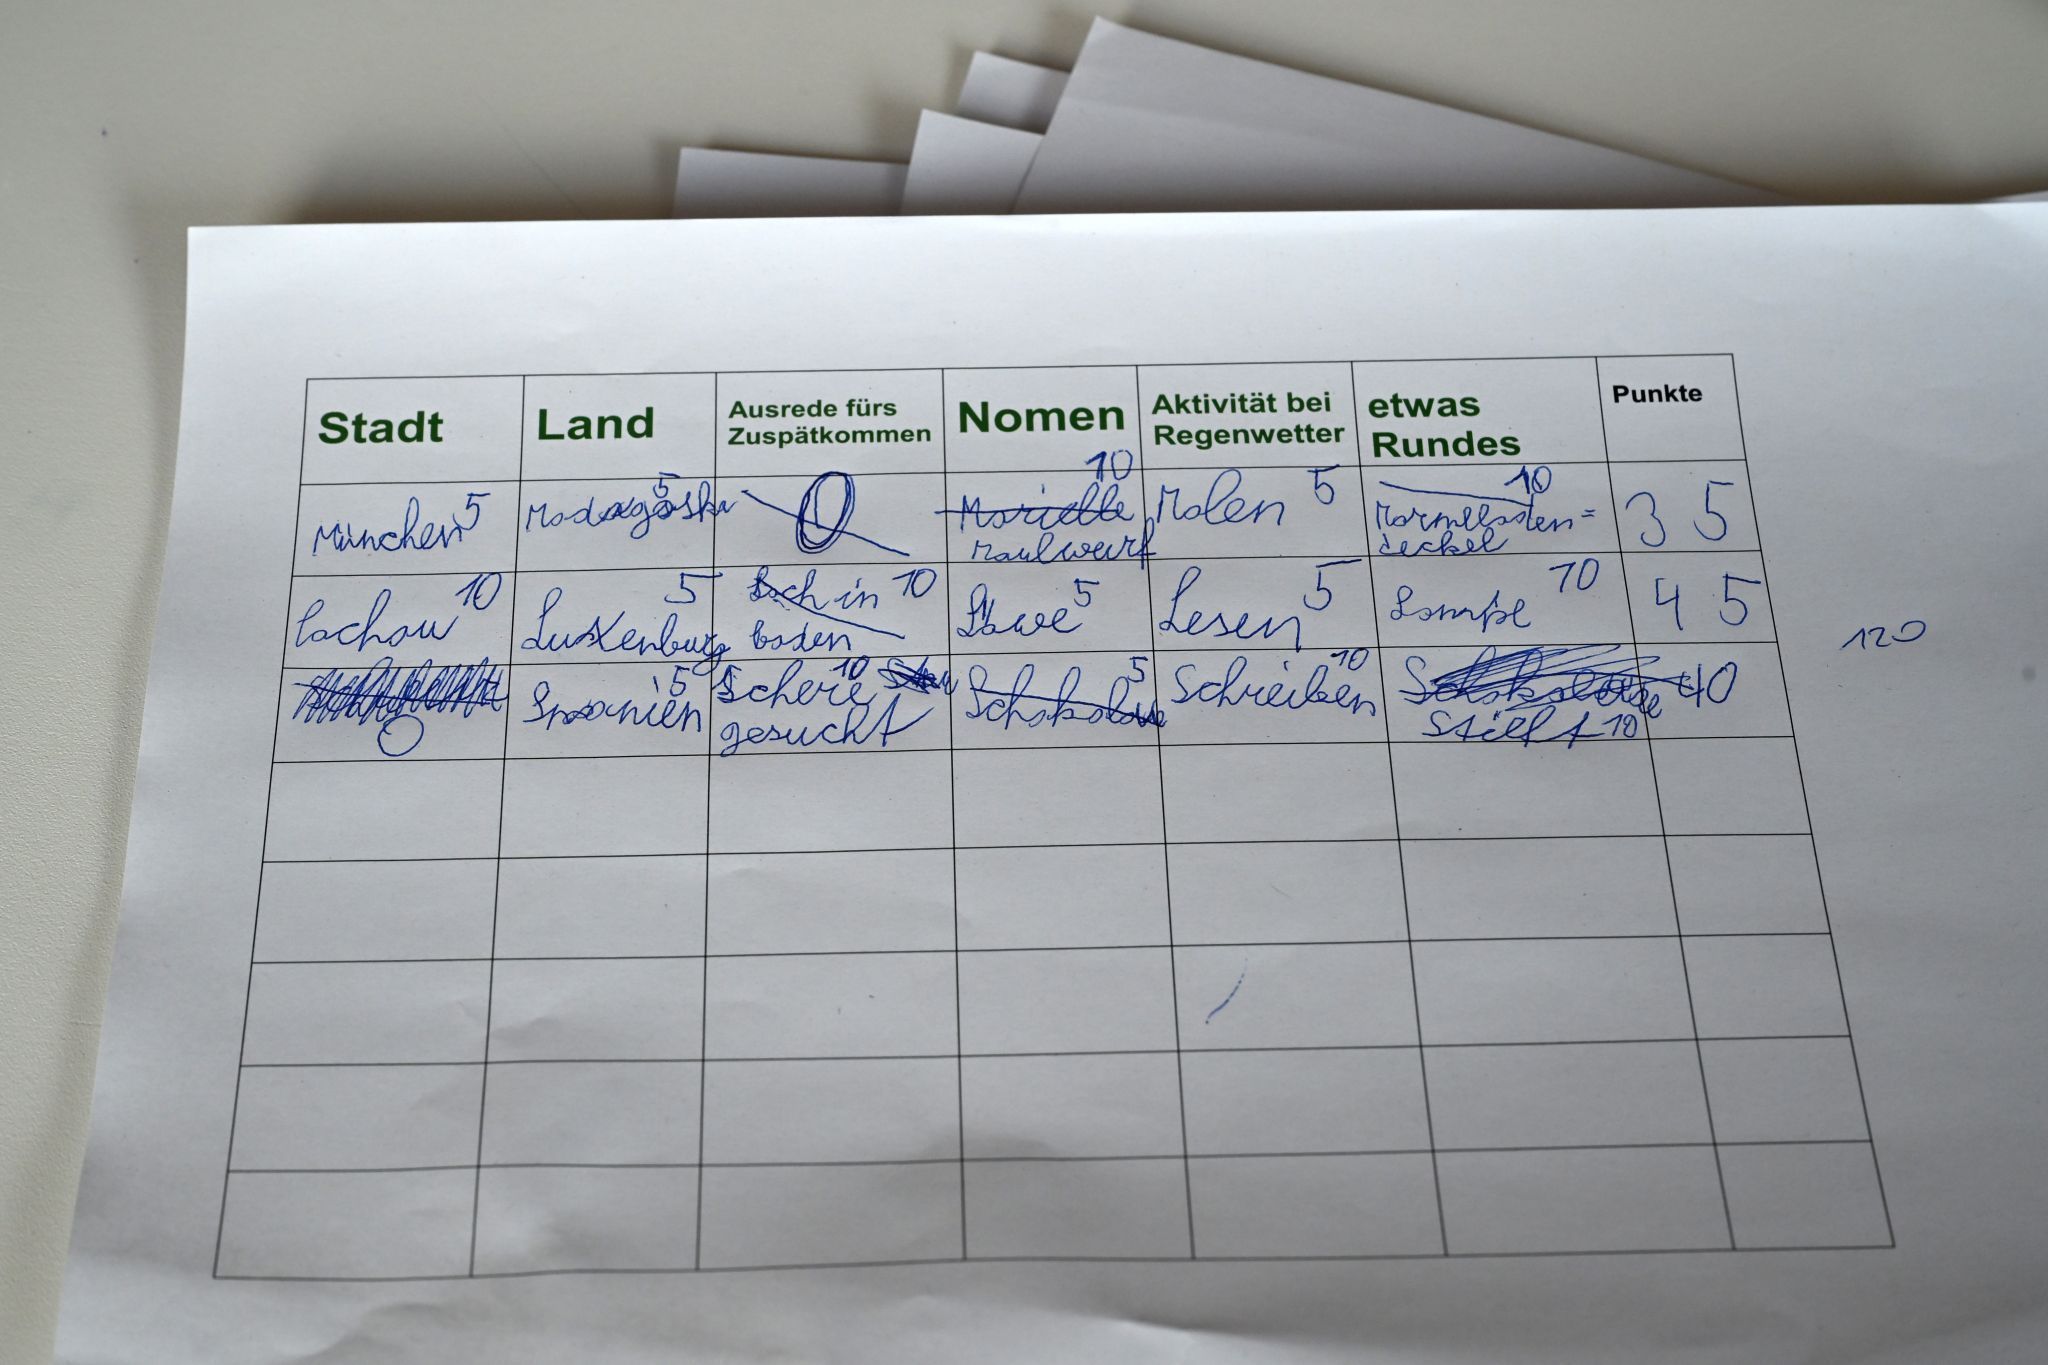 Stadt Land Ausrede fürs Zuspätkommen Nomen Aktivität bei Regenwetter etwas Rundes Punkte
München 5 Madagaska 5 0 Marielle Maulwurf 10 Malen 5 10 deckel 35
Lachau 10 Luxenburg 5 Loch in boden 10 Löwe 5 Lesen 5 Lampe 10 45
0 Spanien 5 Schere gesucht 10 Schokolade 5 Schreiben 10 Stift 10 40
120